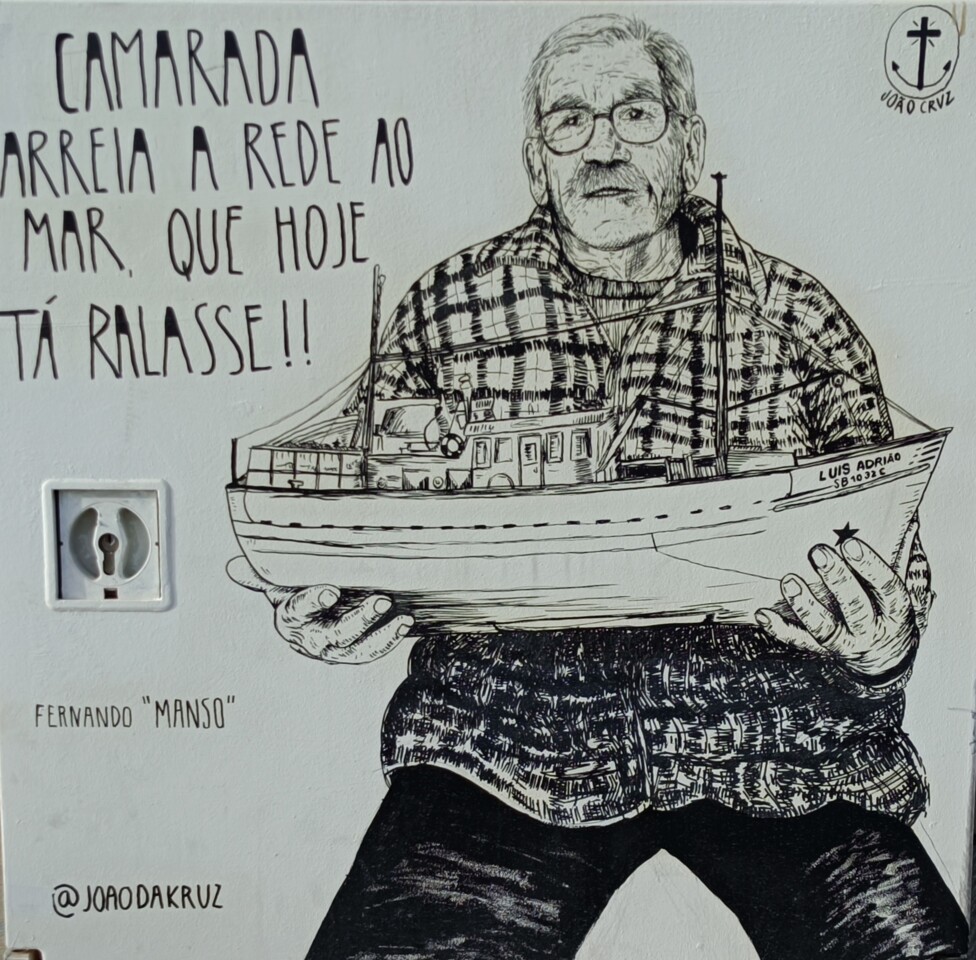 CAMARADA
ARREIA A REDE AO
MAR, QUE HOJE
TÁ RALASSE!!
JOÃO CRUZ
LUIS ADRIÃO
SB1032C
FERNANDO "MANSO"
@JOAODAKRUZ